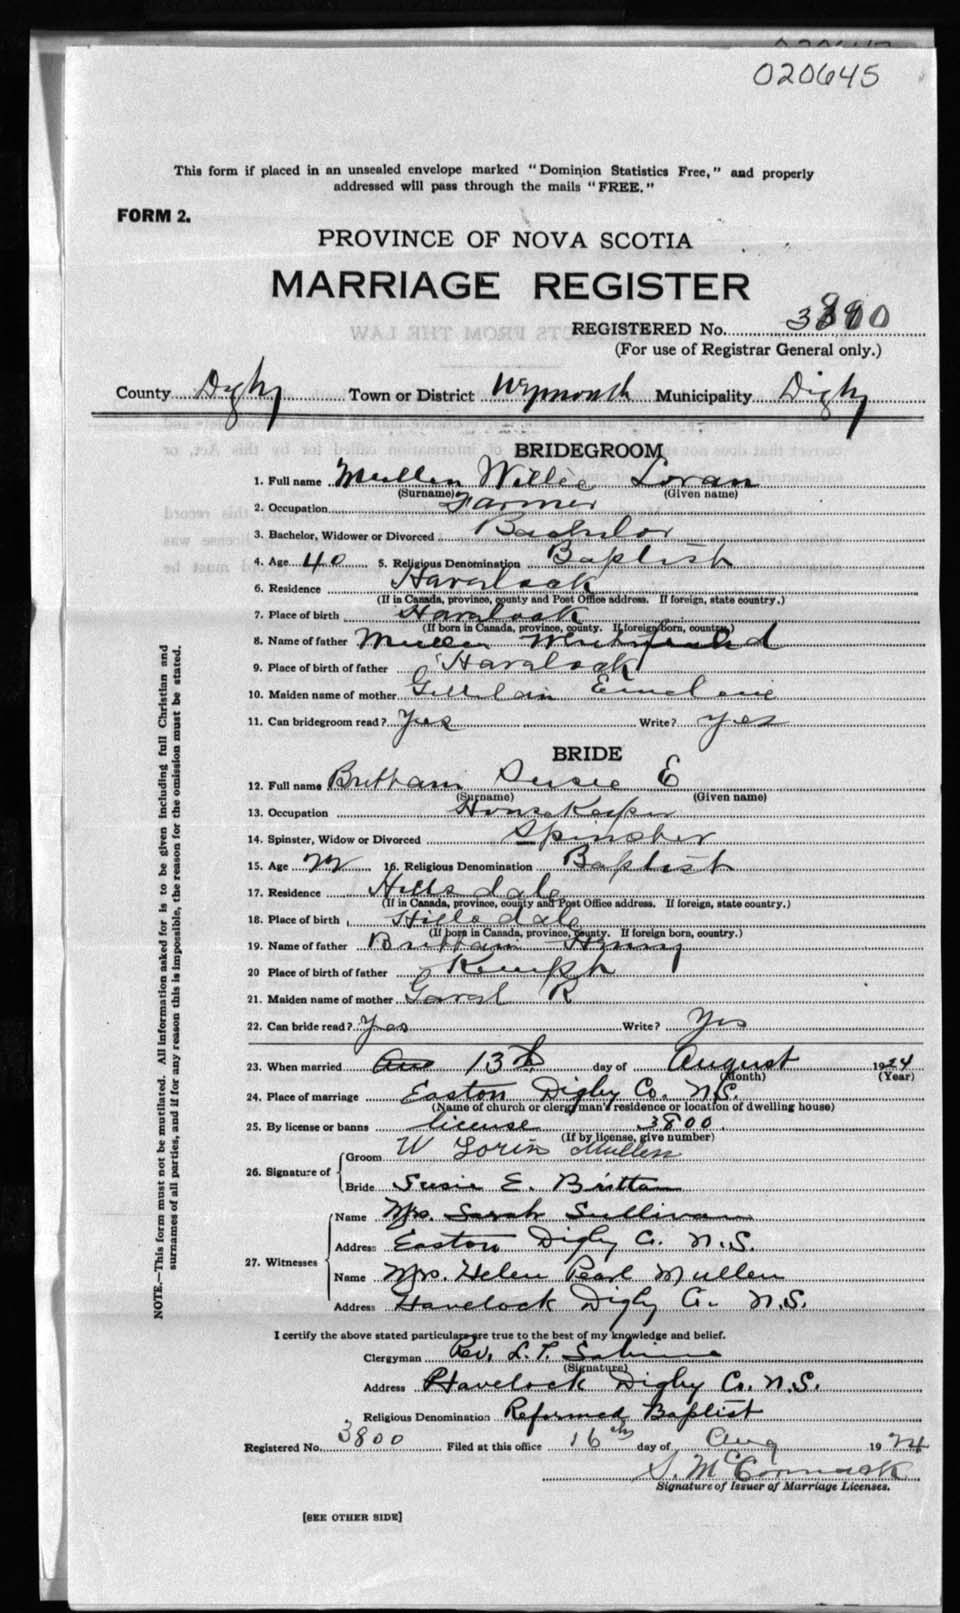 020645
This form if placed in an unsealed envelope marked "Dominion Statistics Free," and properly
addressed will pass through the mails "FREE."
FORM 2.
PROVINCE OF NOVA SCOTIA
MARRIAGE REGISTER
REGISTERED No.
(For use of Registrar General only.)
County Digby Town or District Weymouth Municipality Digby
BRIDEGROOM
1. Full name Mullen Willie Loran
(Surname) (Given name)
2. Occupation Farmer
3. Bachelor, Widower or Divorced Bachelor
4. Age 40 5. Religious Denomination Baptist
6. Residence Havalock
(If in Canada, province, county and Post Office address. If foreign, state country.)
7. Place of birth Havalock
(If born in Canada, province, county. If foreign born, country.)
8. Name of father Mullen
9. Place of birth of father Havalock
10. Maiden name of mother
11. Can bridegroom read? Yes Write? yes
BRIDE
12. Full name Brittain Susie E
(Surname) (Given name)
13. Occupation House Keeper
14. Spinster, Widow or Divorced Spinster
15. Age 16. Religious Denomination Baptist
17. Residence Hillsdale
(If in Canada, province, county and Post Office address. If foreign, state country.)
18. Place of birth Hillsdale
(If born in Canada, province, county. If foreign born, country.)
19. Name of father Brittain Henry
20 Place of birth of father
21. Maiden name of mother R
22. Can bride read? Yes Write? Yes
23. When married 13th day of August 1924
(Month) (Year)
24. Place of marriage Easton Digby Co. N.S.
(Name of church or clergyman's residence or location of dwelling house)
25. By license or banns license 3800
(If by license, give number)
26. Signature of Groom W Lorin Mullen
Bride Susie E. Brittan
27. Witnesses Name Mrs. Sarah Sullivan
Address Easton Digby Co. N.S.
Name Mrs. Helen Pearl Mullen
Address Havelock Digby Co. N.S.
I certify the above stated particulars are true to the best of my knowledge and belief.
Clergyman Rev. L. T. Sabine
(Signature)
Address Havelock Digby Co. N.S.
Religious Denomination Reformed Baptist
Registered No. 3800 Filed at this office 16th day of Aug 1924
S. McCormack
Signature of Issuer of Marriage Licenses.
[SEE OTHER SIDE]
NOTE.—This form must not be mutilated. All information asked for is to be given including full Christian and
surnames of all parties, and if for any reason this is impossible, the reason for the omission must be stated.